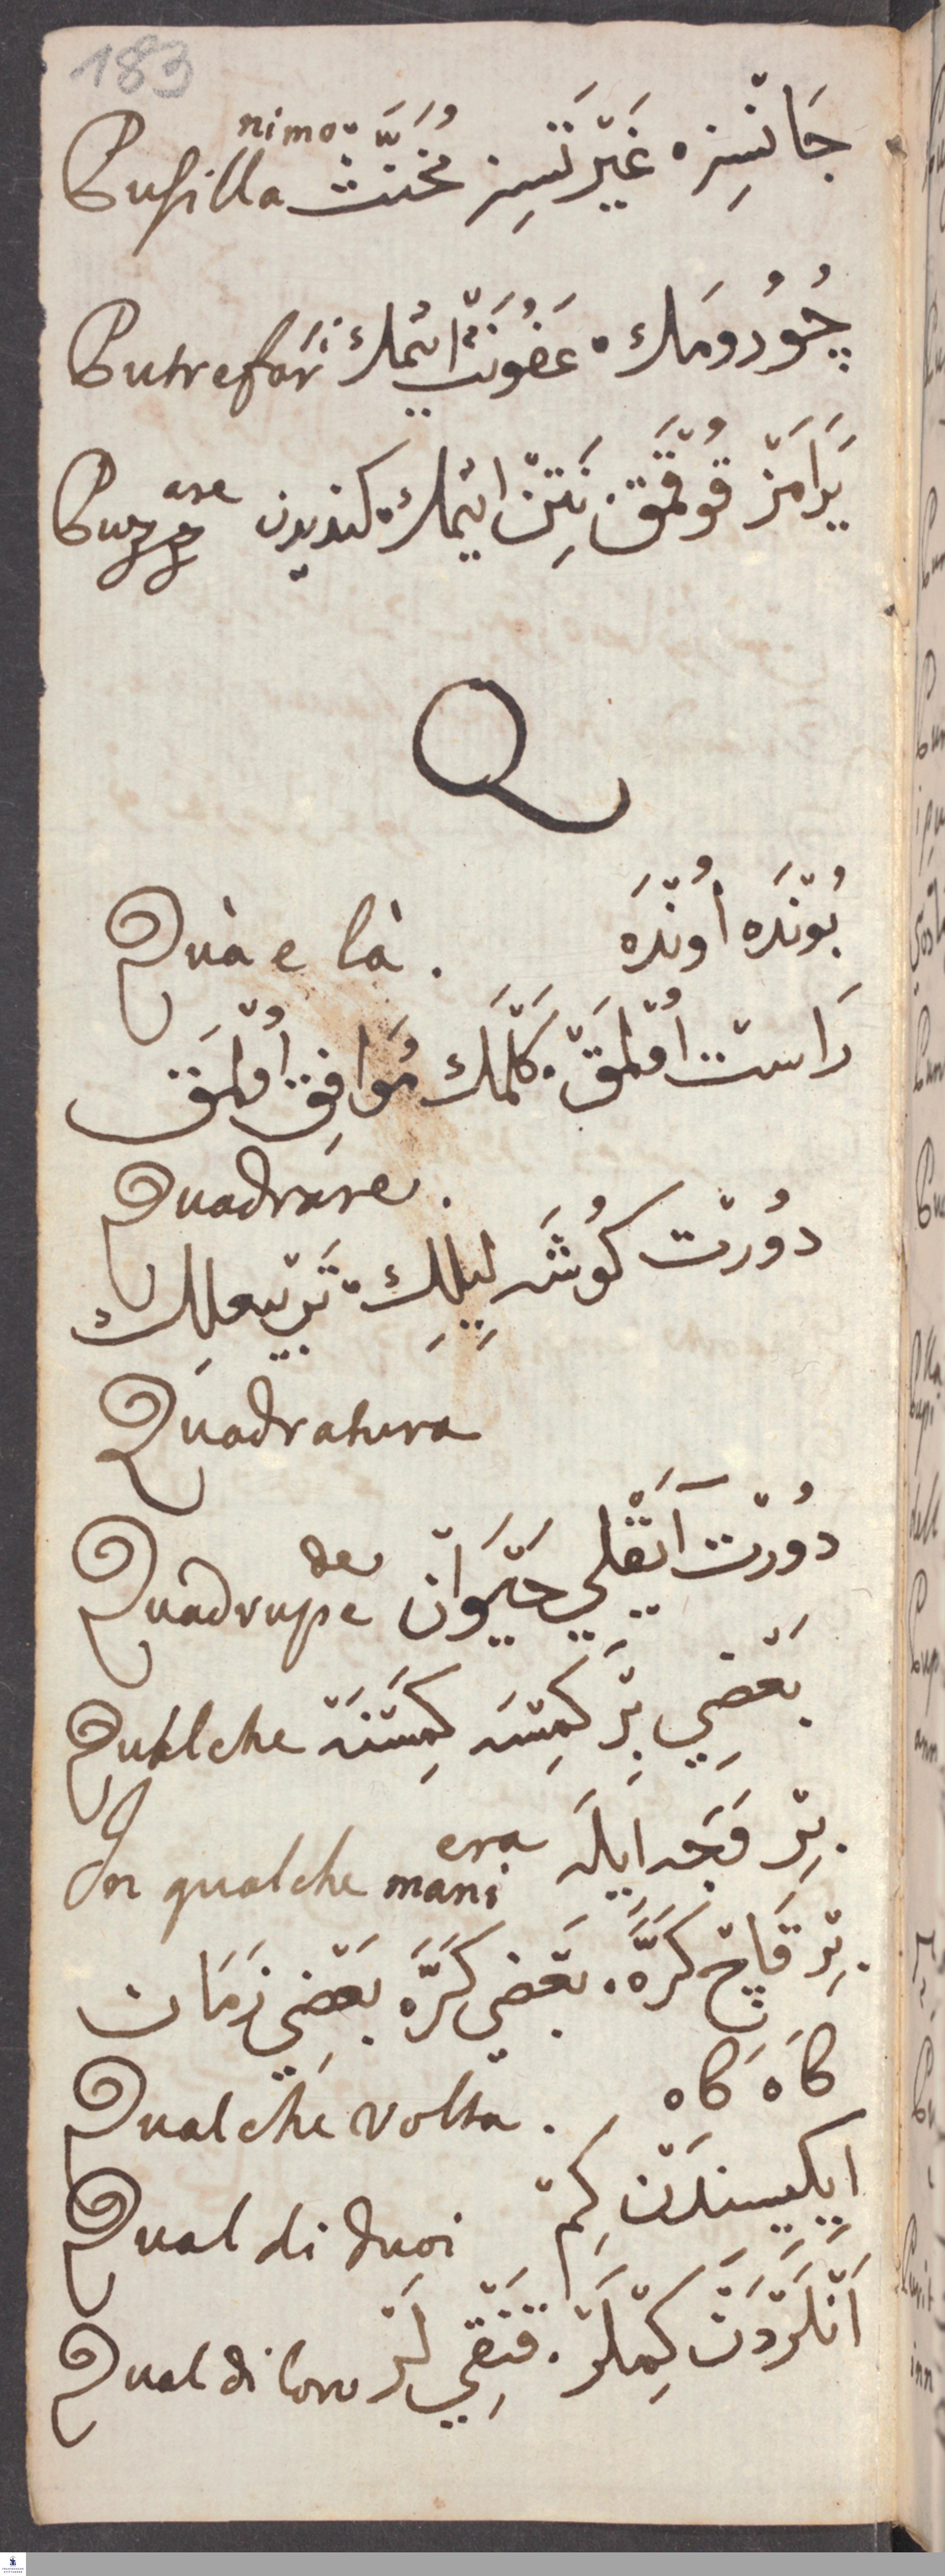 183
Pusillanimo جَانْسِزْ، غَيْرَتْسِزْ مُخَنَّثْ
Putrefari چُورُومَك، عَفُونَتْ ايتْمَك
Puzzare يَرَامَزْ قُوقْمَقْ، نَتِنْ ايتْمَك كنديدن
Q
Quà e là. بُونْدَه اُونْدَه
رَاسْت اُولْمَقْ، كَلْمَك مُوَافِقْ اُولْمَقْ
Quadrare.
دُورْت كُوشَه لِيلِك، تَرْبِيعلِك
Quadratura
Quadrupede دُورْت آيَقْلِي حَيَوَانْ
Qualche بَعْضِي بِرْ كِمْسَه كِمْسَنَه
In qualche maniera بِرْ وَجَه ايلَه
بِرْ قَاچْ كَرَّه، بَعْضِي كَرَّه بَعْضِي زَمَان
Qualche volta. كَاه كَاه
Qual di duoi ايكِيسِنْدَنْ كِمْ
Qual di loro اَنْلَرْدَنْ كِمْلَرْ، قَنْقِي لَرْ